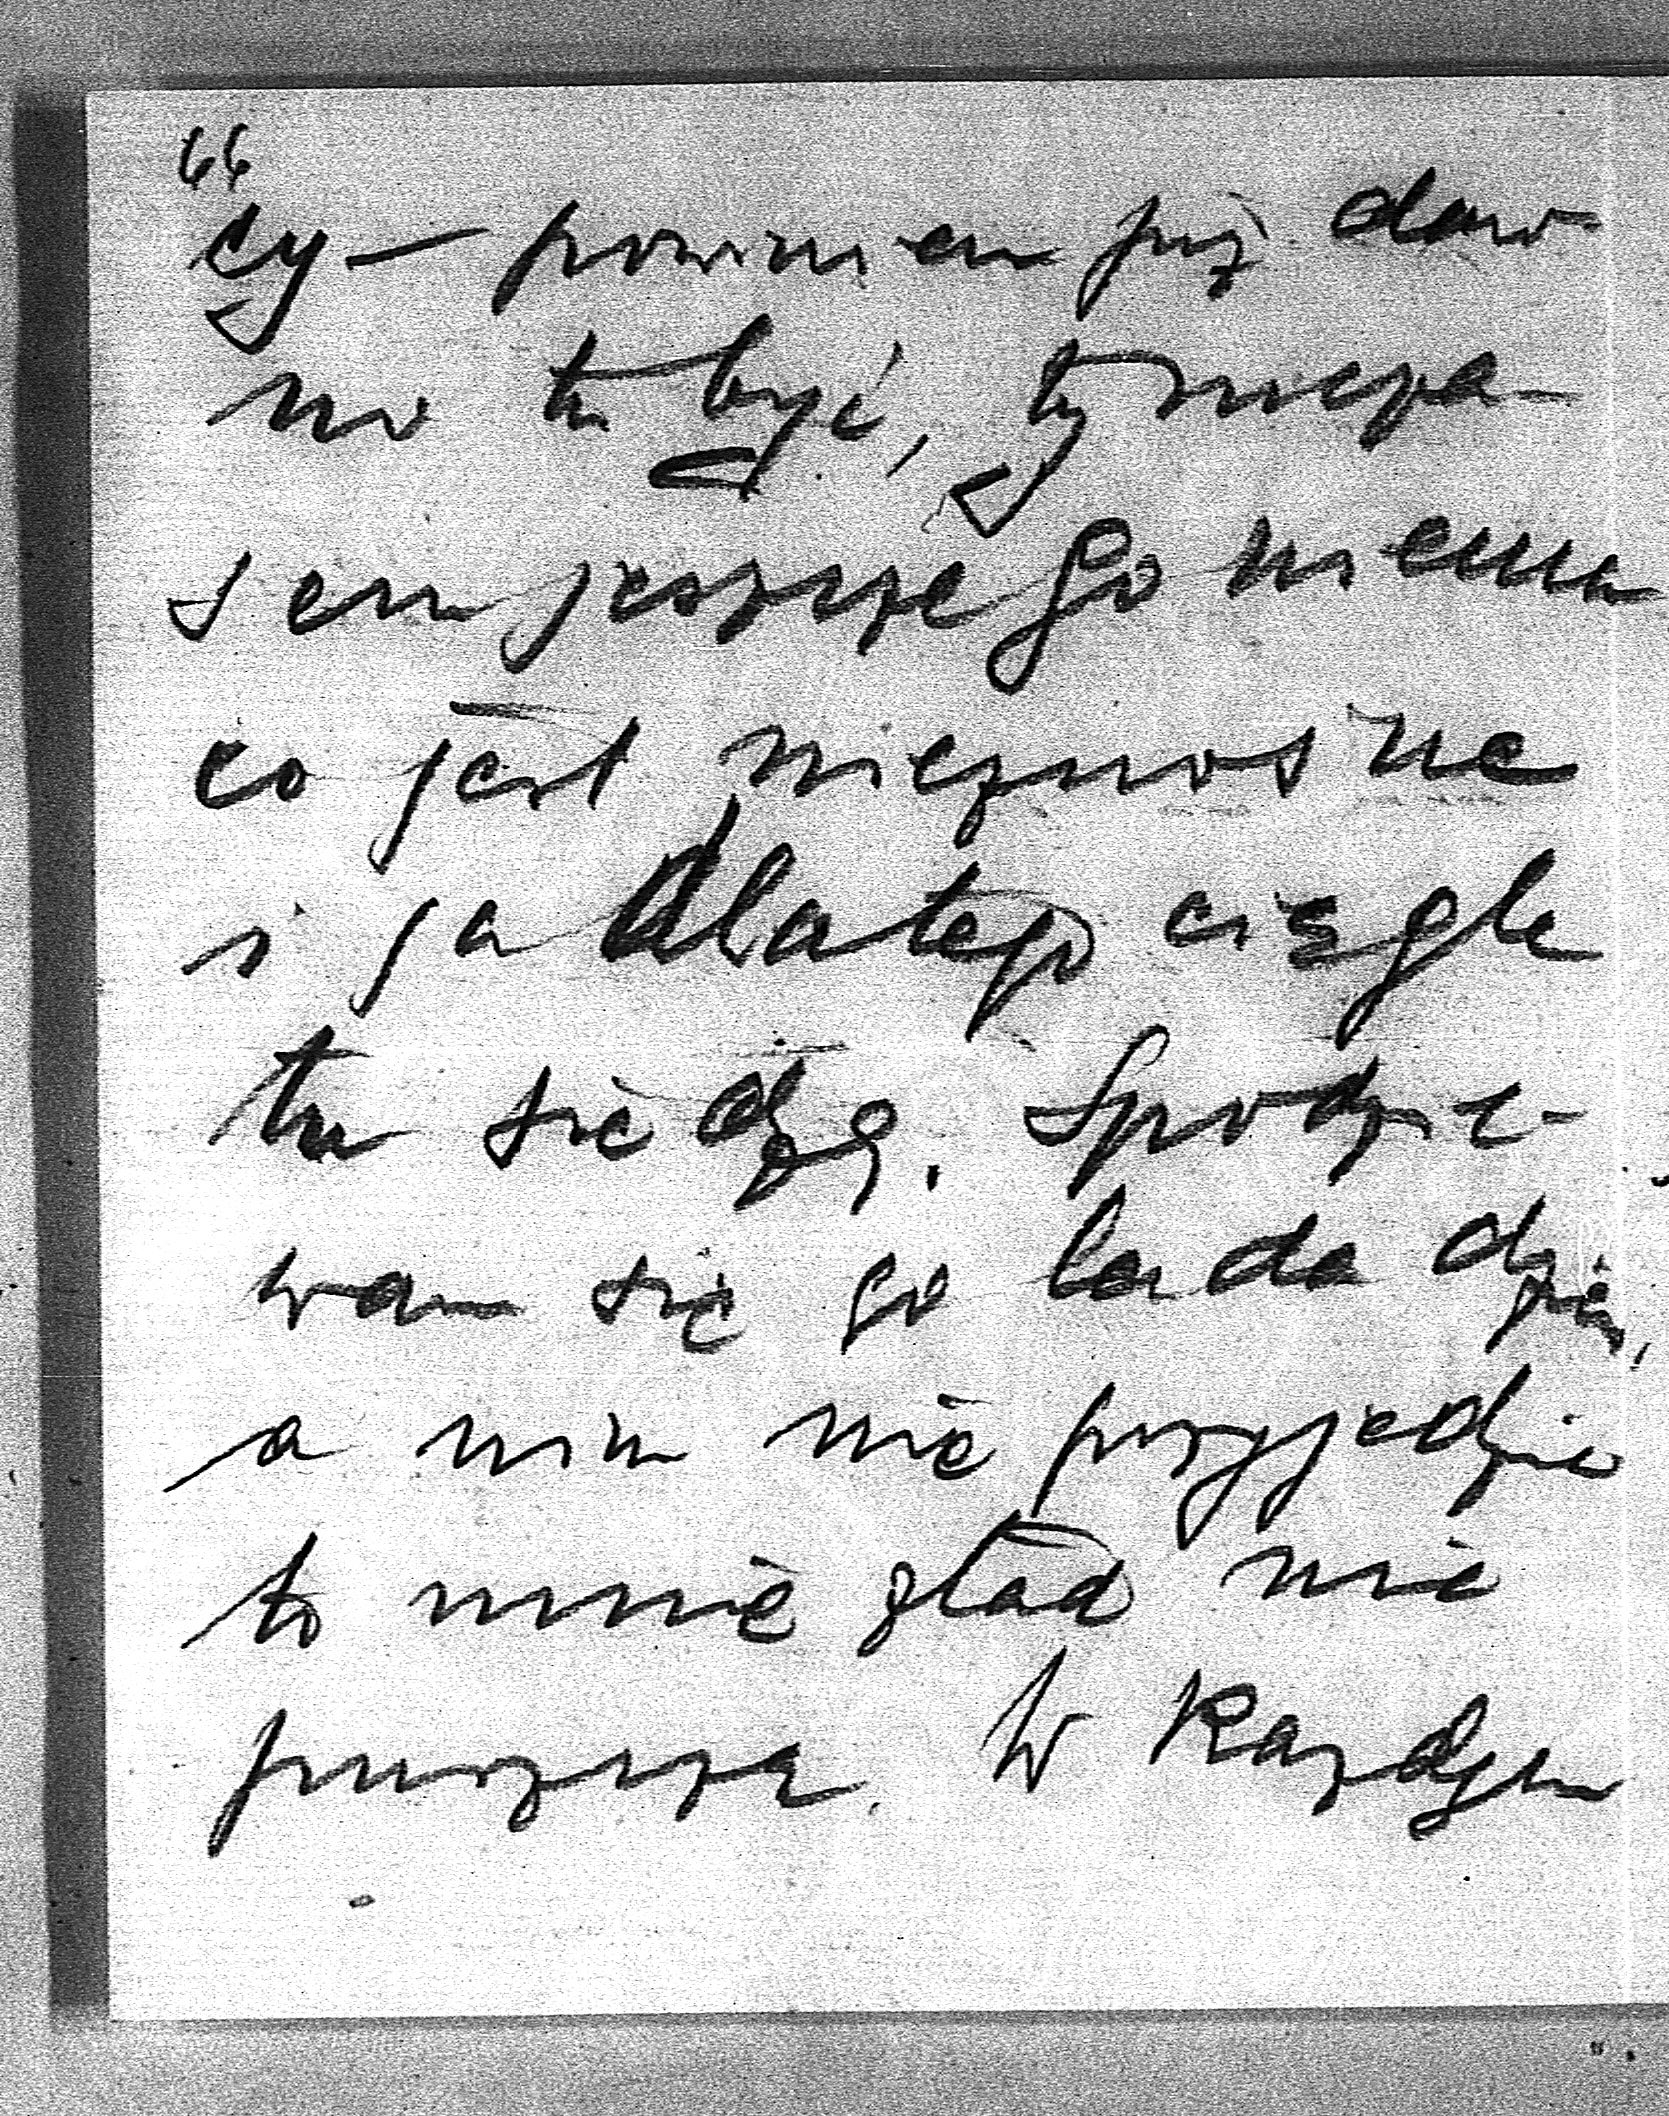 66
cy — powinien już daw-
no tu być, tymcza-
sem jeszcze go niema
co jest nieznośne
i ja dlatego ciągle
tu siedzę. Spodzie-
wam się go lada dzień,
a nim nie przyjedzie
to mnie ztąd nie
puszczą. W każdym